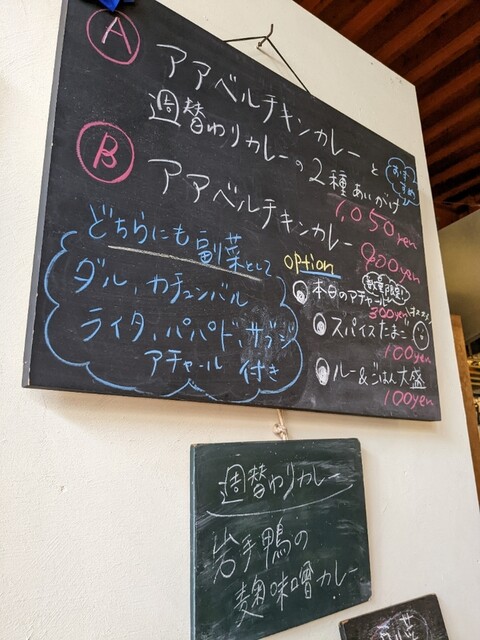 A アアベルチキンカレーと
週替わりカレーの2種あいがけ
おすすめ
1,050yen
B アアベルチキンカレー
900yen
どちらにも副菜として、
ダル、カチュンバル
ライタ、パパド、サブジ
アチャール 付き
option
本日のアチャール 数量限定!
300yen
スパイスたまご
100yen
ルー&ごはん大盛
100yen
週替わりカレー
岩手鴨の
麹味噌カレー